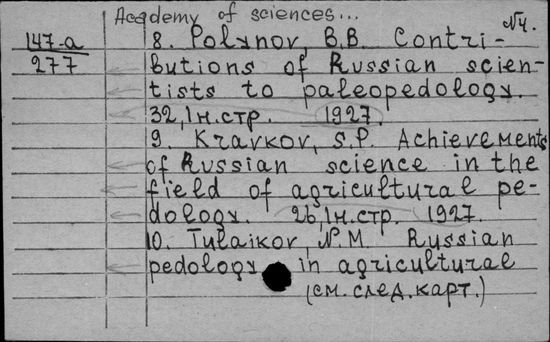 Academy of sciences...
№4.
147-a
277
8. Polynov, B.B. Contri-
butions of Russian scien-
tists to paleopedology.
32, 1 н.стр. 1927.
9. Kravkov, S.P. Achievements
of Russian science in the
field of agricultural pe-
dology. 26, 1н.стр. 1927.
10. Tulaikov, N.M. Russian
pedology in agricultural
(см. след. карт.)